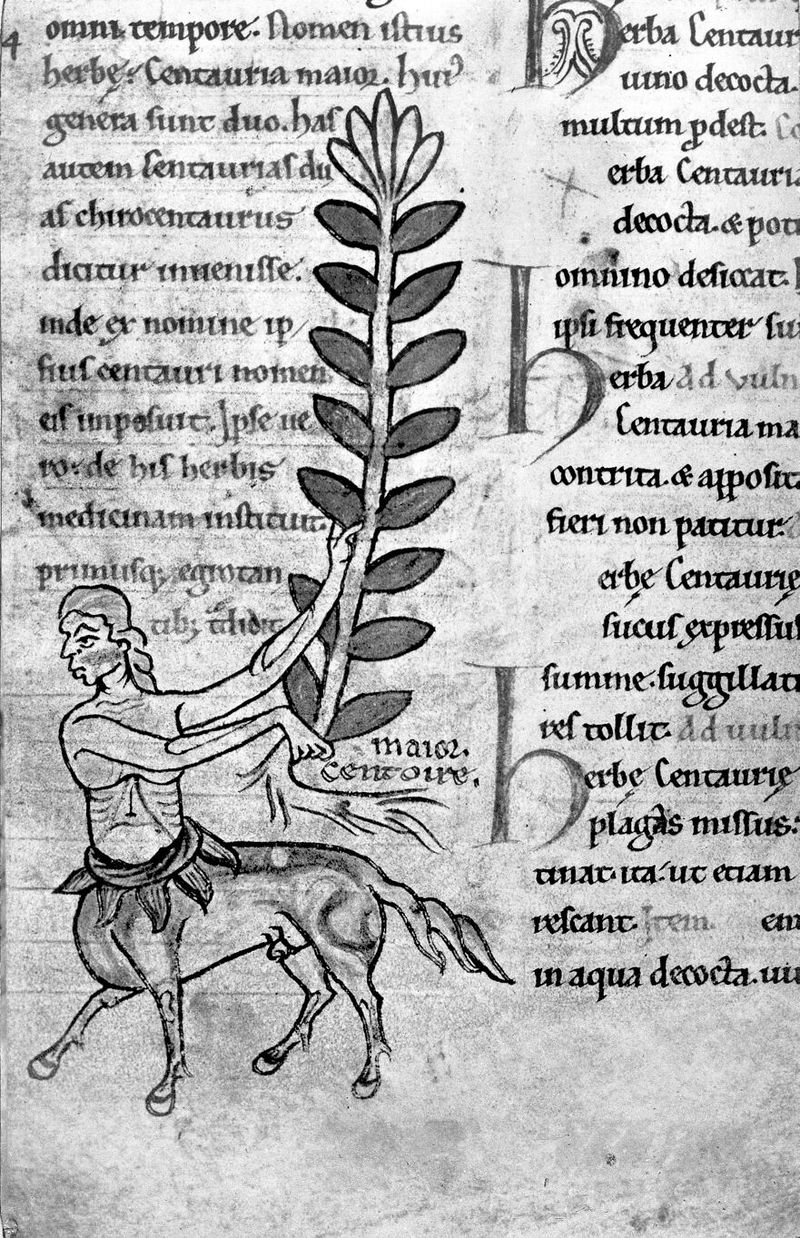 4
omni tempore. Nomen istius
herbę. Centauria maior. hui᾽
genera sunt duo. has
autem Centaurias du
as chirocentaurus
dicitur inuenisse.
inde ex nomine ip
sius centauri nomen
eis imposuit. Ipse ue
ro. de his herbis
medicinam instituit.
primusq; egrotan
tib;
maior.
centoire.
herba Centaur
uino decocta.
multum ꝓdest.
erba Centauria
decocta. & poti
omnino desiccat.
ipsi frequenter su
herba Ad vuln
Centauria ma
contrita. & apposita
fieri non patitur.
erbę Centaurię
sucus expressus
summe. suggillati
res tollit. Ad uuln
herbę Centaurię
plagas missus.
tinat. ita. ut etiam
rescant. Item. em
in aqua decocta. uu